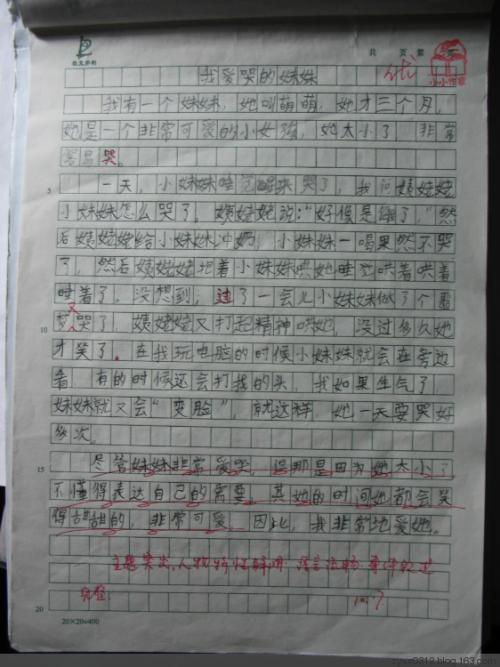 共 页 第 页
优
我爱哭的妹妹
我有一个妹妹，她叫萌萌，她才三个月，
她是一个非常可爱的小女孩，她太小了 非常
容易哭。
5 一天，小妹妹睡觉醒来哭了，我问姨姥姥
小妹妹怎么哭了。姨姥姥说：“好像是饿了，”然
后姨姥姥给小妹妹冲奶，小妹妹一喝果然不哭
了，然后姨姥姥抱着小妹妹哄她睡觉哄着哄着
睡着了，没想到，过了一会儿小妹妹做了个噩
10 梦又哭了，姨姥姥又打起精神哄她，没过多久她
才笑了。在我玩电脑的时候小妹妹就会在旁边
看 有的时候还会打我的头，我如果生气了
妹妹就又会“变脸”，就这样 她一天要哭好
多次。
15 尽管妹妹非常爱哭，但那是因为她太小了
不懂得表达自己的需要，其她的时间她都会笑
得甜甜的，非常可爱 因此，我非常地爱她。
主题突出，人物特征鲜明
20
20×20=400